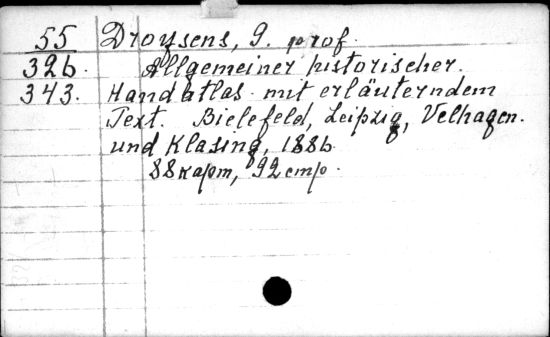 55 Droysens, G. prof.
326. Allgemeiner historischer.
343. Handatlas mit erläuterndem
Text. Bielefeld, Leipzig, Velhagen.
und Klasing, 1886
88 карт, 92 стр.